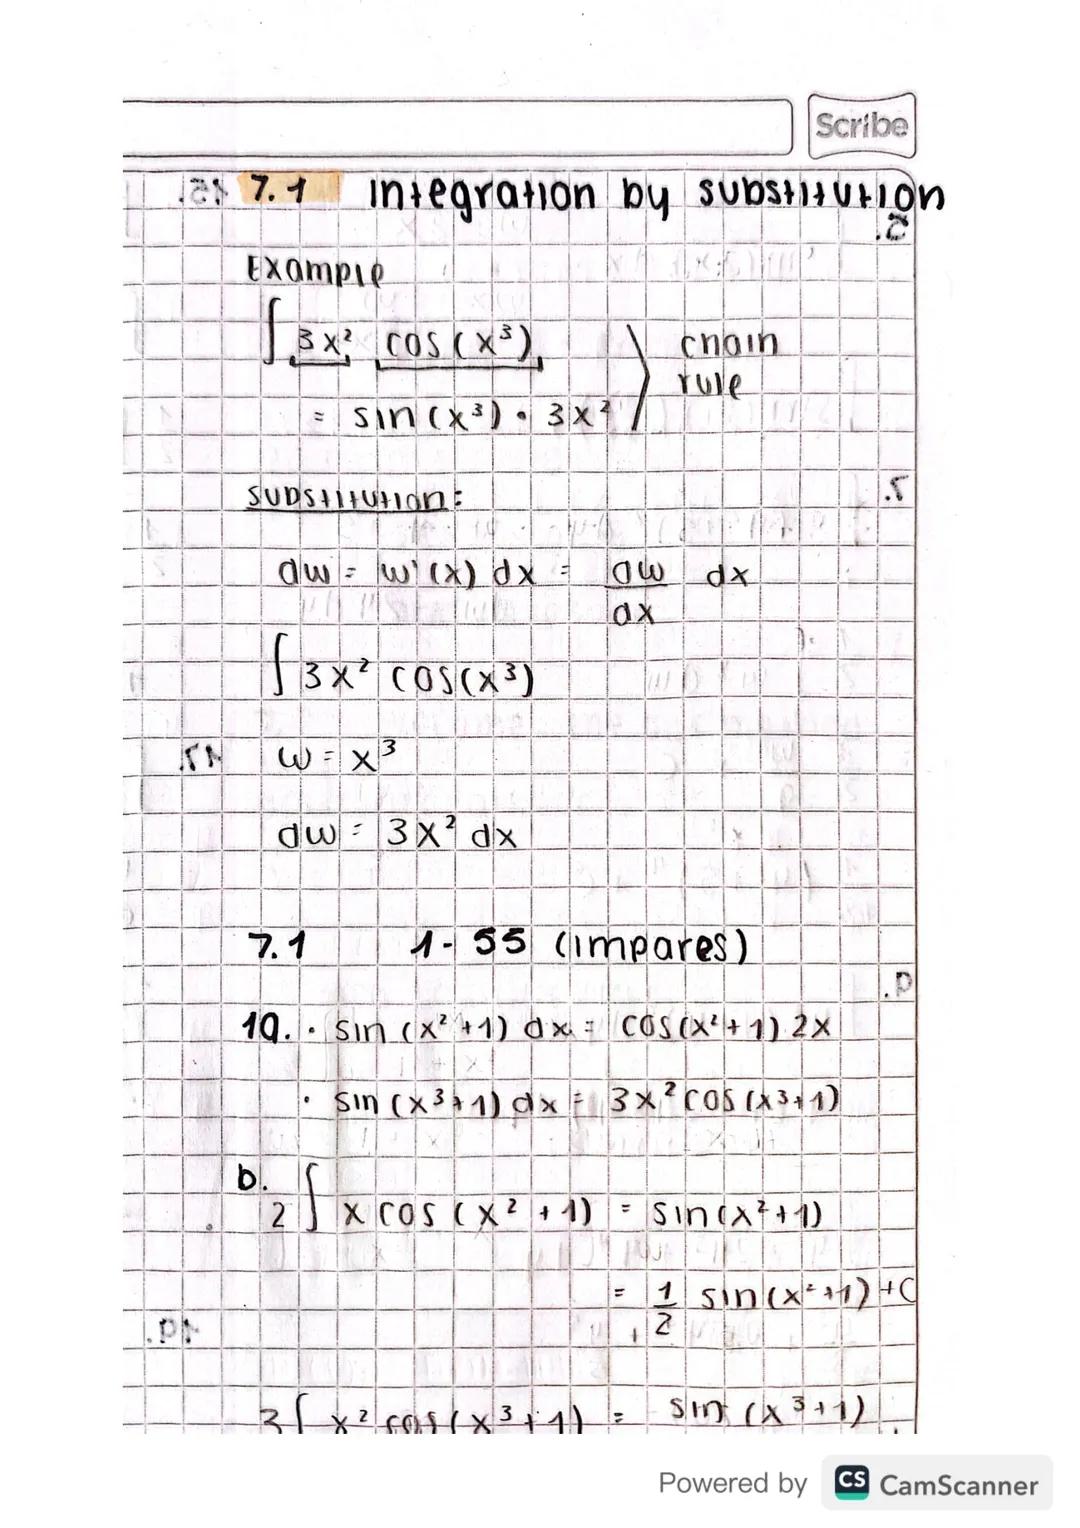 Scribe
7.1 Integration by substitution
Example
∫ 3x² cos(x³)
= sin(x³) · 3x²
chain
rule
Substitution:
dw = w'(x) dx = dw/dx dx
∫ 3x² cos(x³)
w = x³
dw = 3x² dx
7.1 1-55 (impares)
1a. · sin (x²+1) dx = cos(x²+1) 2x
· sin (x³+1) dx = 3x² cos (x³+1)
b.
2 ∫ x cos (x² + 1) = sin(x²+1)
= 1/2 sin(x²+1) +C
3 ∫ x² cos(x³+1) = sin (x³+1)
Powered by CS CamScanner